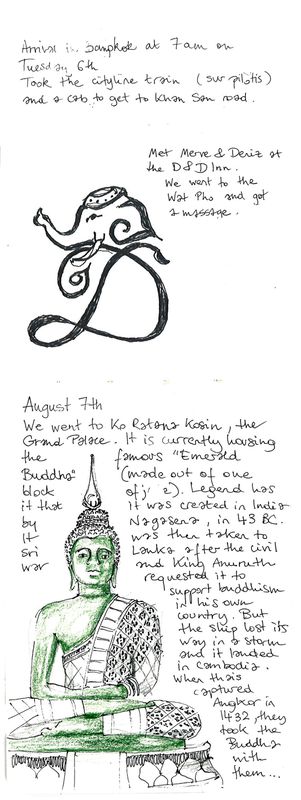 Arrival in Bangkok at 7am on
Tuesday 6th
Took the cityline train (sur pilotis)
and a cab to get to Khan San road.
Met Merve & Deniz at
the D&D Inn.
We went to the
Wat Pho and got
a massage.
August 7th
We went to Ko Ratana Kosin, the
Grand Palace. It is currently housing
the famous "Emerald
Buddha" (made out of one
block of). Legend has
it that it was created in India
by Nagasena, in 43 BC.
It was then taken to
Sri Lanka after the civil
war and King Anuruth
requested it to
support buddhism
in his own
country. But
the ship lost its
way in a storm
and it landed
in Cambodia.
When thais
captured
Angkor in
1432 they
took the
Buddha
with
them...